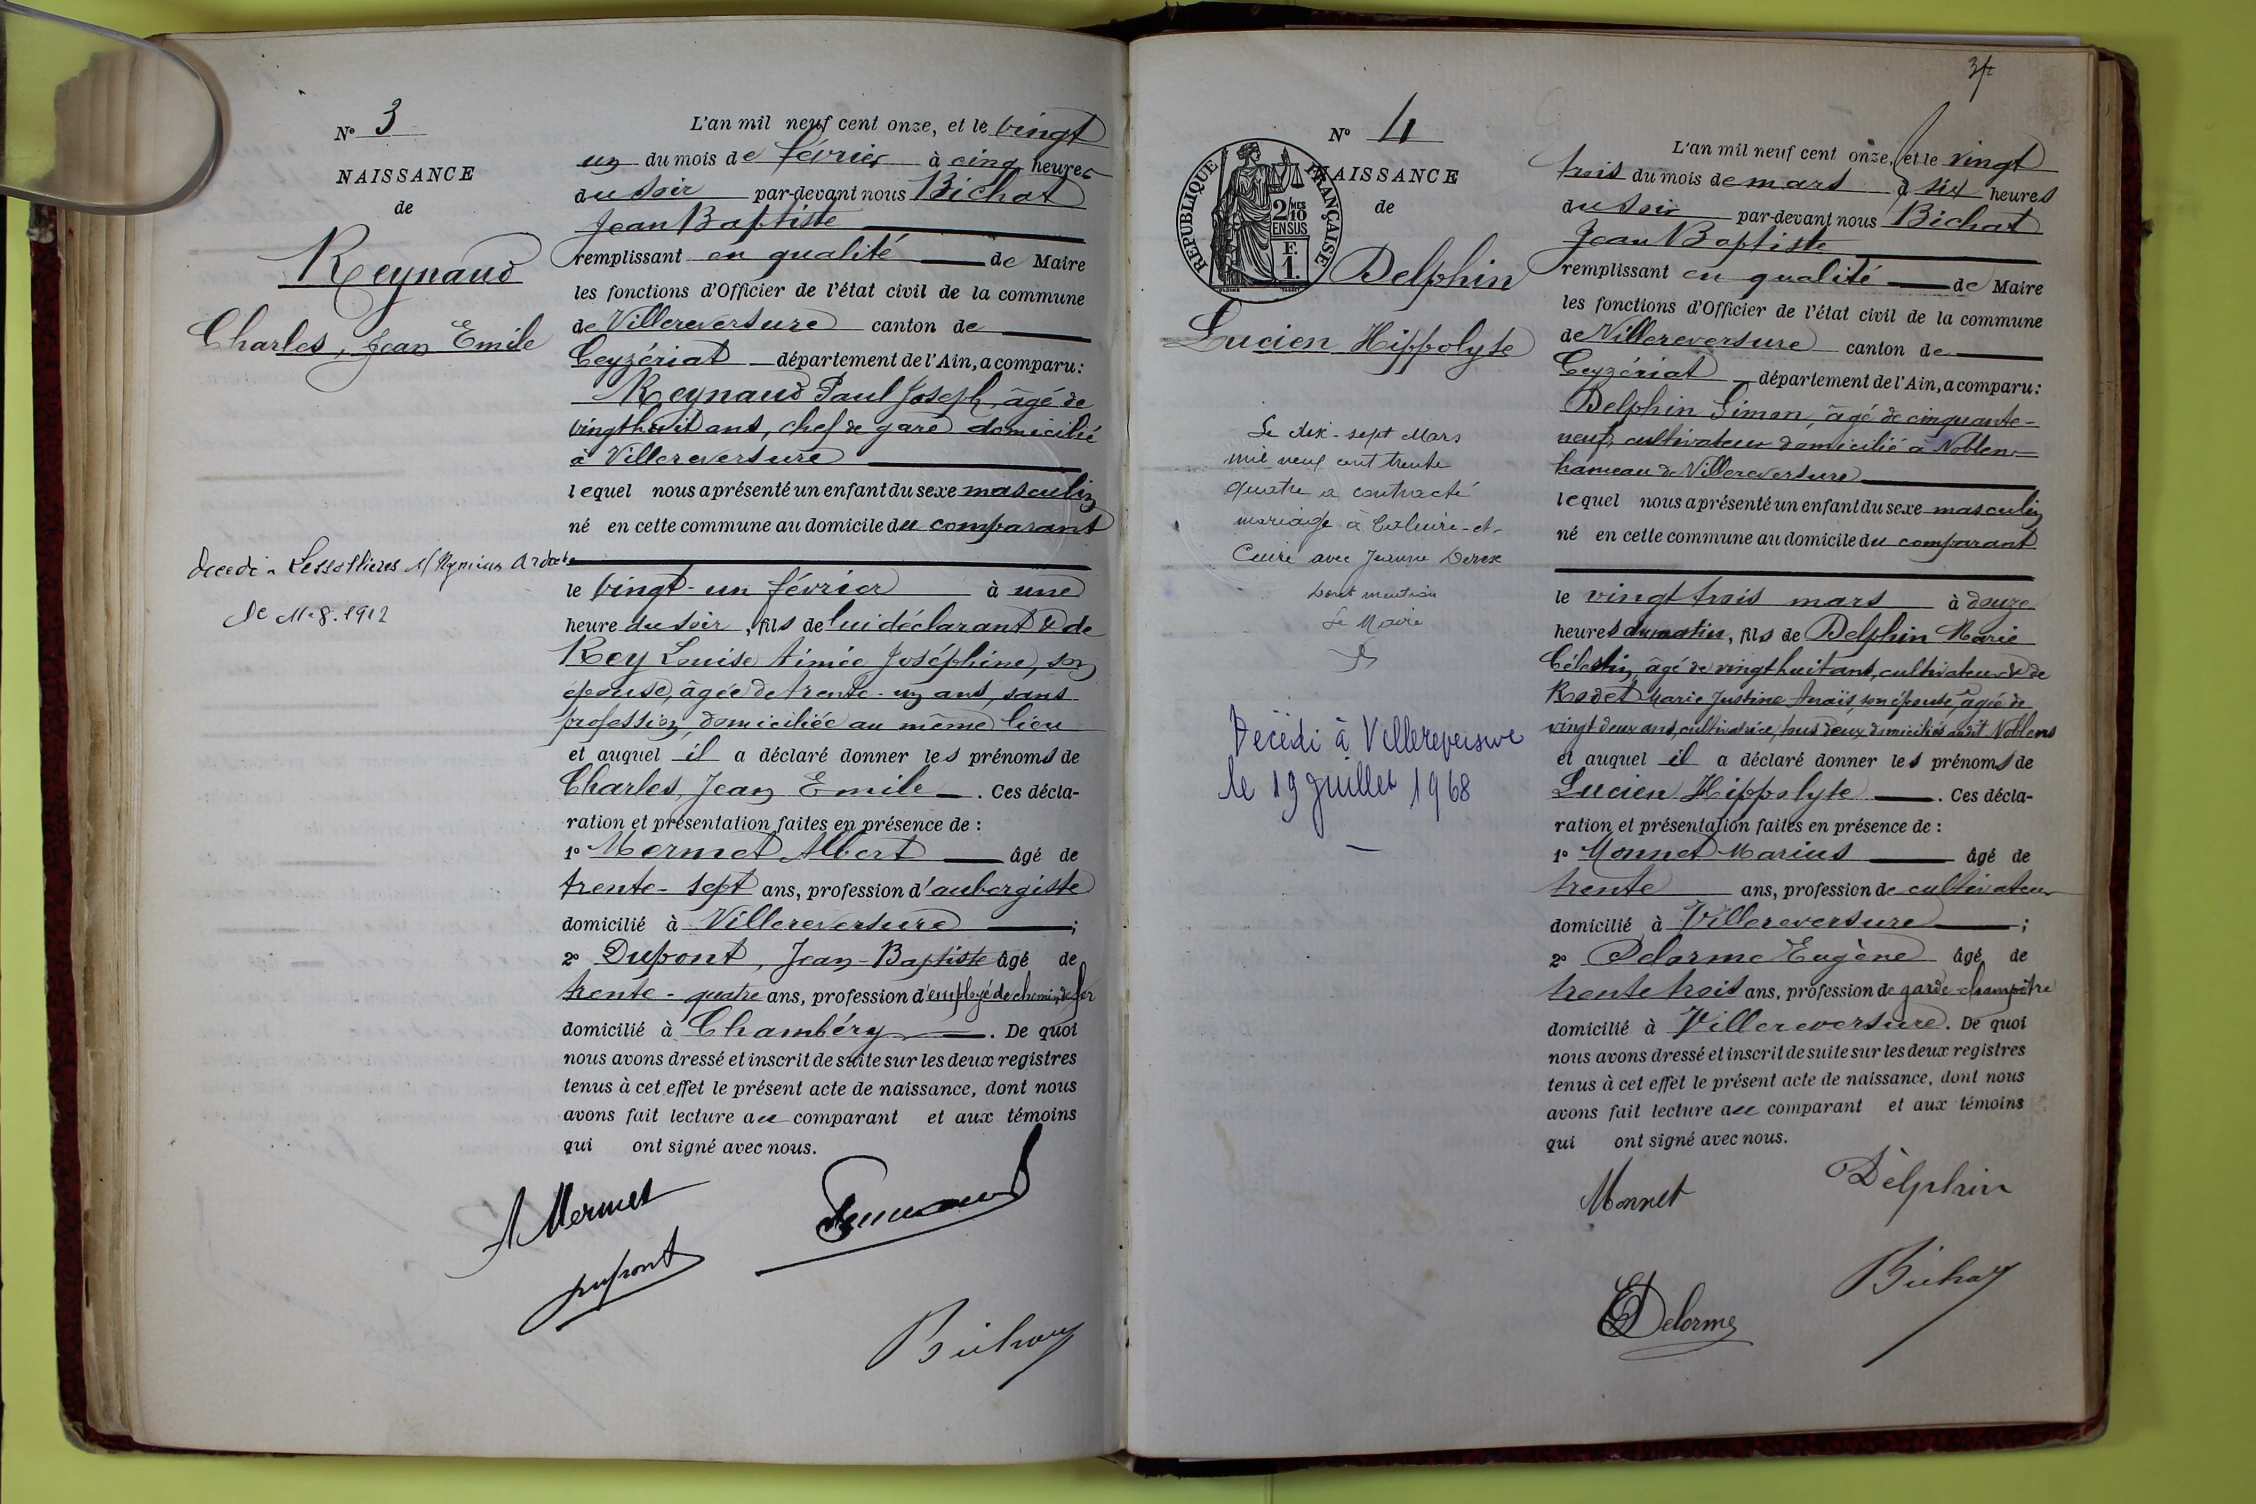 N° 3
NAISSANCE
de
Reynaud
Charles, Jean Emile
Décédé à
le 11.8.1912
L'an mil neuf cent onze, et le vingt
un du mois de février à cinq heures
du soir par-devant nous Bichat
Jean Baptiste
remplissant en qualité de Maire
les fonctions d'Officier de l'état civil de la commune
de Villereversure canton de
Ceyzériat département de l'Ain, a comparu:
Reynaud Paul Joseph, âgé de
vingt huit ans, chef de gare domicilié
à Villereversure
lequel nous a présenté un enfant du sexe masculin
né en cette commune au domicile du comparant
le vingt-un février à une
heure du soir, fils de lui déclarant & de
Rey Louise Aimée Joséphine, son
épouse, âgée de trente-un ans, sans
profession, domiciliée au même lieu
et auquel il a déclaré donner les prénoms de
Charles, Jean Emile. Ces décla-
ration et présentation faites en présence de :
1° Mermet Albert âgé de
trente-sept ans, profession d'aubergiste
domicilié à Villereversure ;
2° Dupont, Jean-Baptiste âgé de
trente-quatre ans, profession d'employé de chemin de fer
domicilié à Chambéry. De quoi
nous avons dressé et inscrit de suite sur les deux registres
tenus à cet effet le présent acte de naissance, dont nous
avons fait lecture au comparant et aux témoins
qui ont signé avec nous.
A Mermet
Dupont
Bichat
3
N° 4
NAISSANCE
de
RÉPUBLIQUE FRANÇAISE
2/10 MES
EN SUS
F.
1.
Delphin
Lucien Hippolyte
Le dix-sept Mars
mil neuf cent trente
quatre a contracté
mariage à Caluire-et-
Cuire avec Jeanne
Dont mention
Le Maire
Décédé à Villereversure
le 19 Juillet 1968
L'an mil neuf cent onze, et le vingt
trois du mois de mars à six heures
du soir par-devant nous Bichat
Jean Baptiste
remplissant en qualité de Maire
les fonctions d'Officier de l'état civil de la commune
de Villereversure canton de
Ceyzériat département de l'Ain, a comparu:
Delphin Simon, âgé de cinquante-
neuf, cultivateur domicilié à Noblens
hameau de Villereversure
lequel nous a présenté un enfant du sexe masculin
né en cette commune au domicile du comparant
le vingt trois mars à douze
heures du matin, fils de Delphin Marie
Célestin, âgé de vingt huit ans, cultivateur & de
Rodet Marie Justine Anaïs, son épouse, âgée de
vingt deux ans, cultivatrice, tous deux domiciliés audit Noblens
et auquel il a déclaré donner les prénoms de
Lucien Hippolyte. Ces décla-
ration et présentation faites en présence de :
1° Monnet Marius âgé de
trente ans, profession de cultivateur
domicilié à Villereversure ;
2° Delorme Eugène âgé de
trente trois ans, profession de garde-champêtre
domicilié à Villereversure. De quoi
nous avons dressé et inscrit de suite sur les deux registres
tenus à cet effet le présent acte de naissance, dont nous
avons fait lecture au comparant et aux témoins
qui ont signé avec nous.
Monnet
Delphin
Bichat
E Delorme